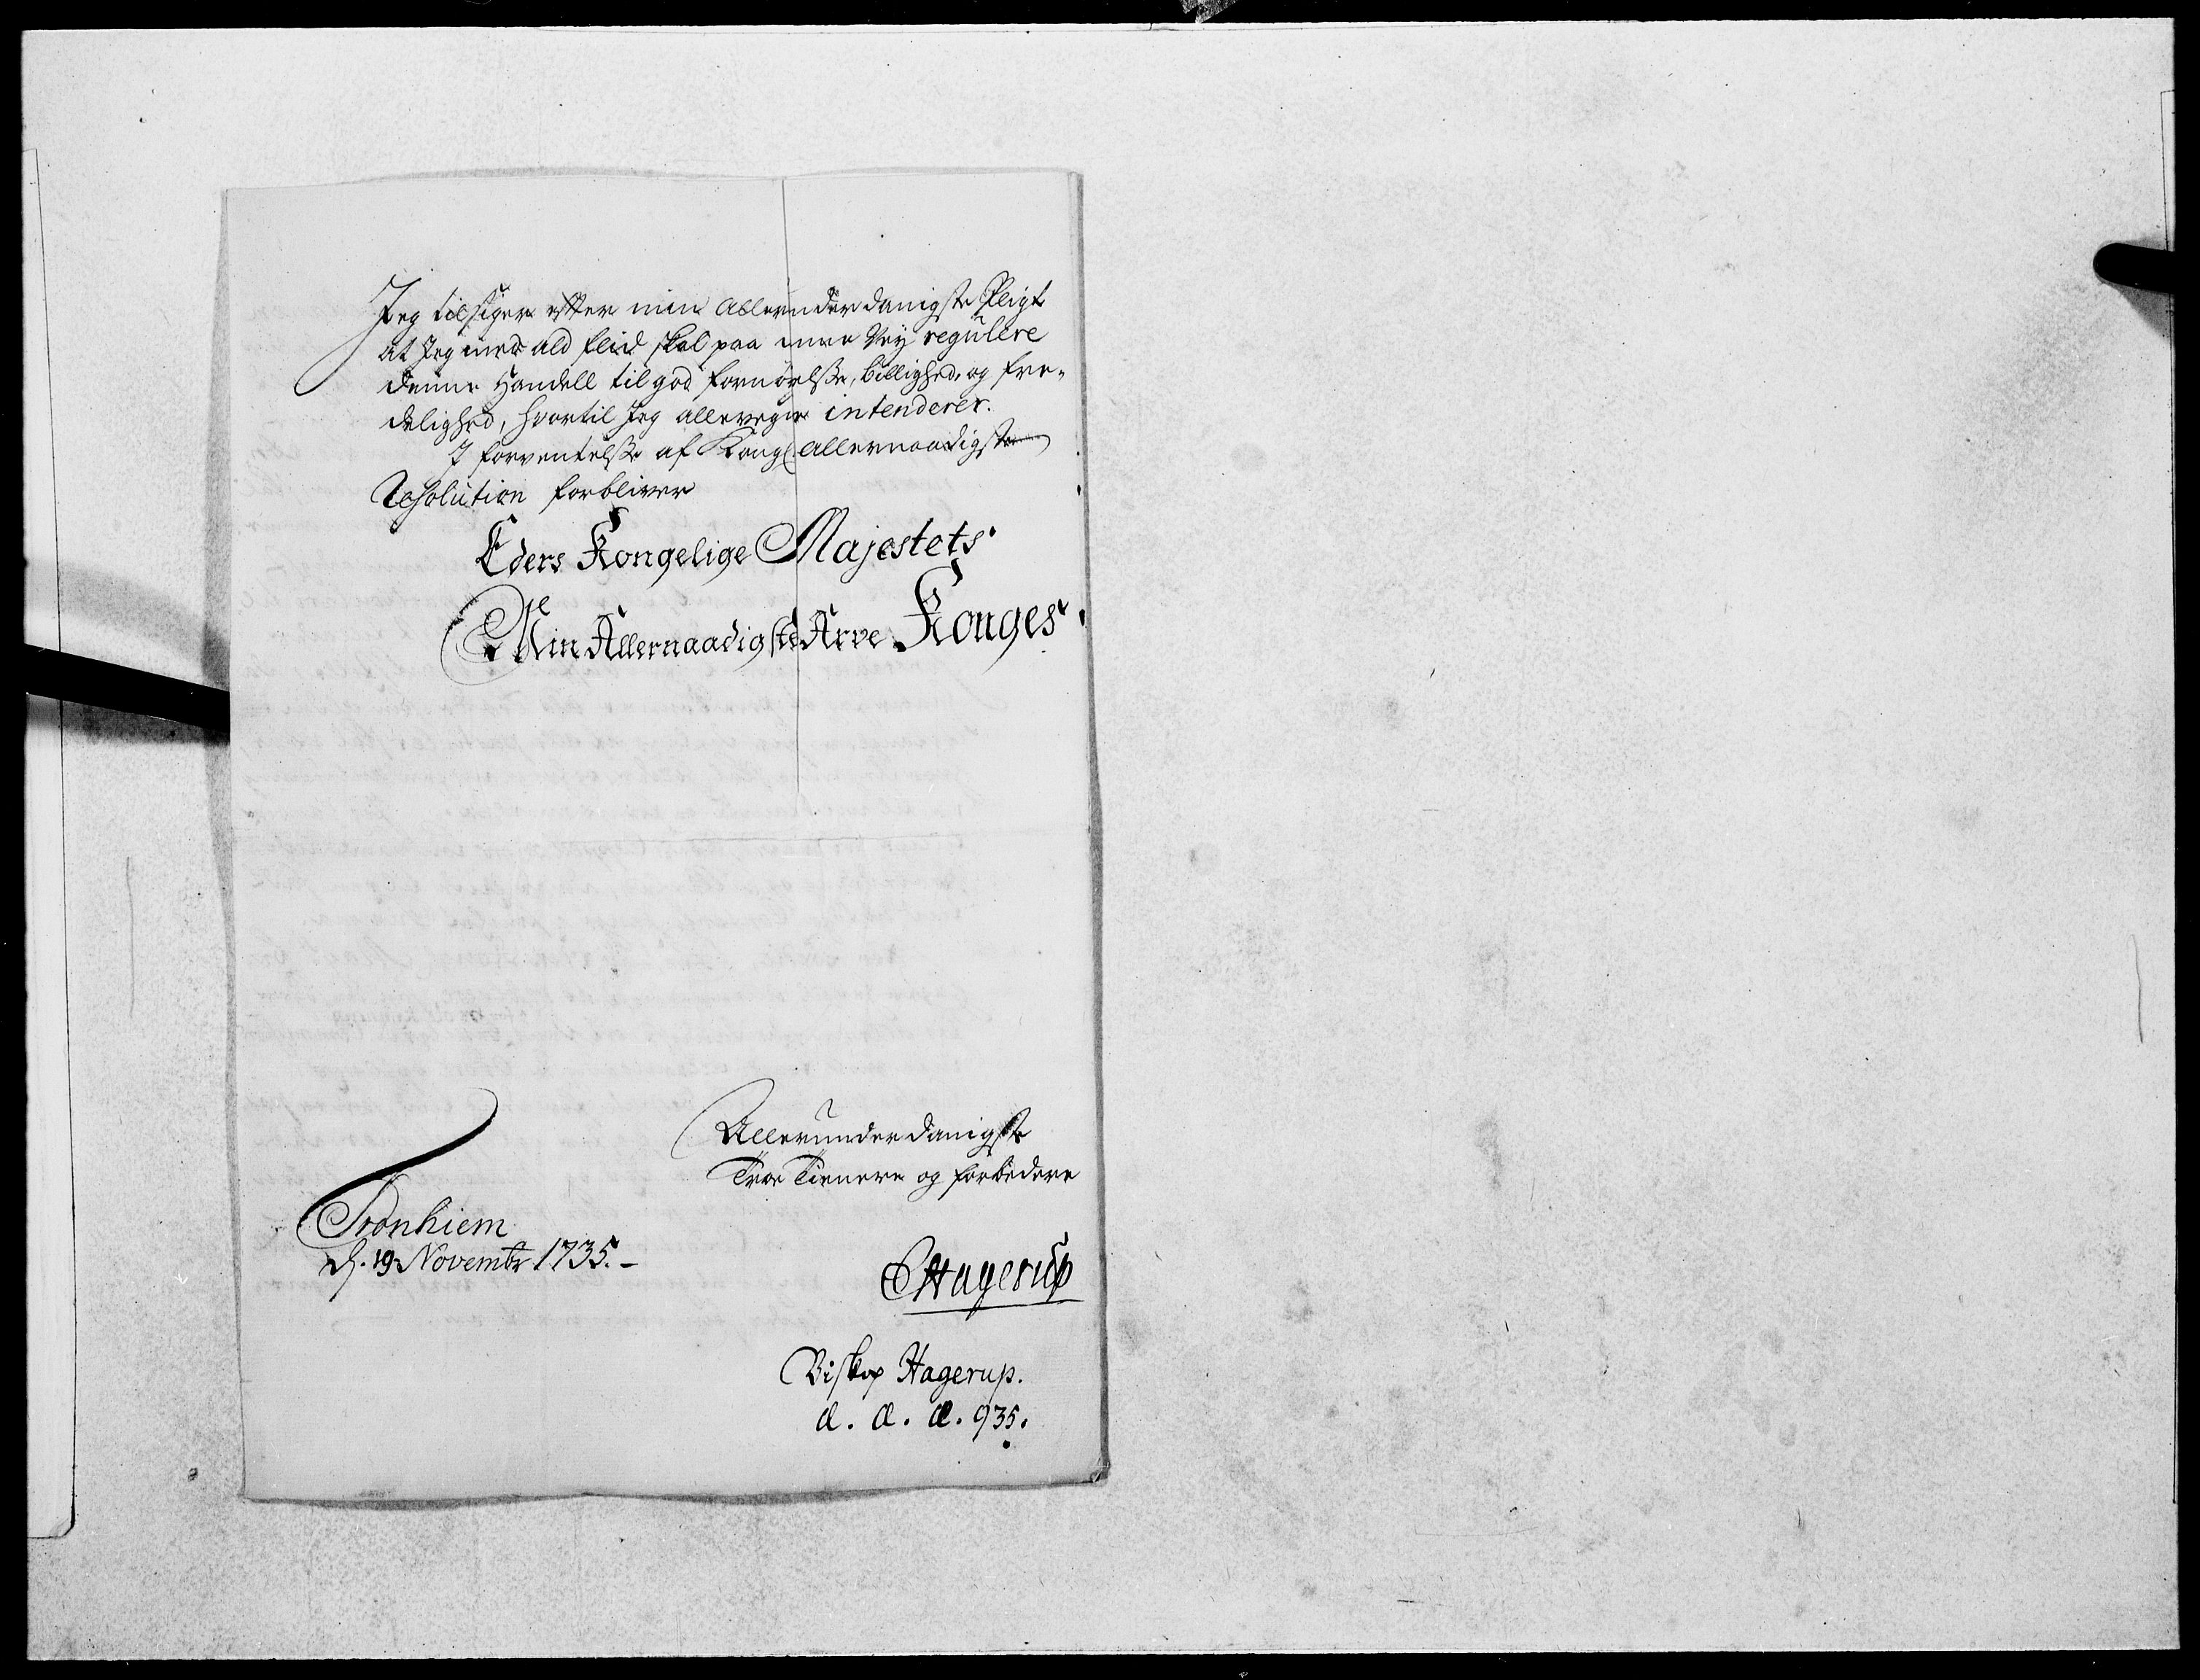 Jeg tilsiger efter min allerunderdanigste Pligt
at Jeg med ald fliid skal paa mene Vey regulere
denne Handell til god fornøyelsse, billighed, og fre-
delighed, hvortil Jeg allevegne intenderer.
I forventelsse af Kongl: allernaadigste
Resolution forbliver
Eders Kongelige Majestets
Min Allernaadigste Arve Konges
Allerunderdanigste
Troe Tienere og forbedere
Tronhiem
d. 19 Novembr 1735.-
EHagerup
Biskop Hagerup.
a. a. a. 935.